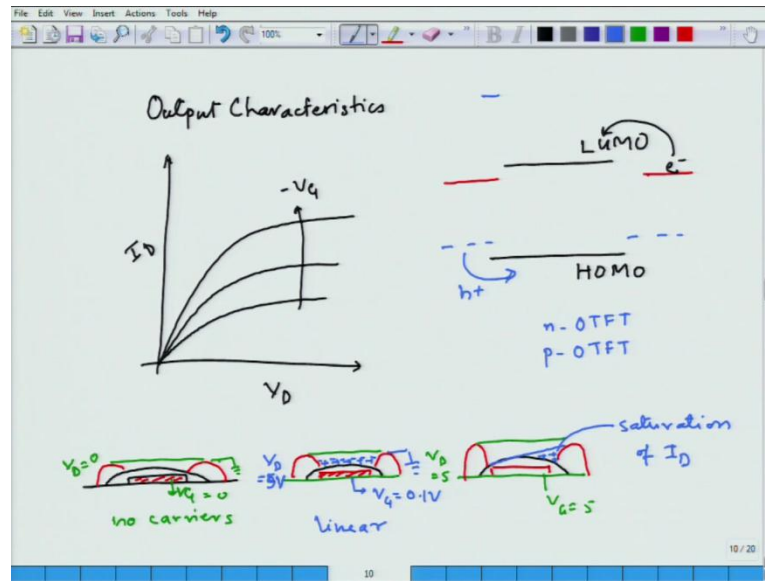 File Edit View Insert Actions Tools Help
100%
B I
Output Characteristics
I_D
-V_G
V_D
LUMO
e-
HOMO
h+
n-OTFT
p-OTFT
V_D=0
V_G=0
no carriers
V_D
=5V
++++++
V_G=0.1V
linear
V_D
=5
++
V_G=5
saturation
of I_D
10 / 20
10